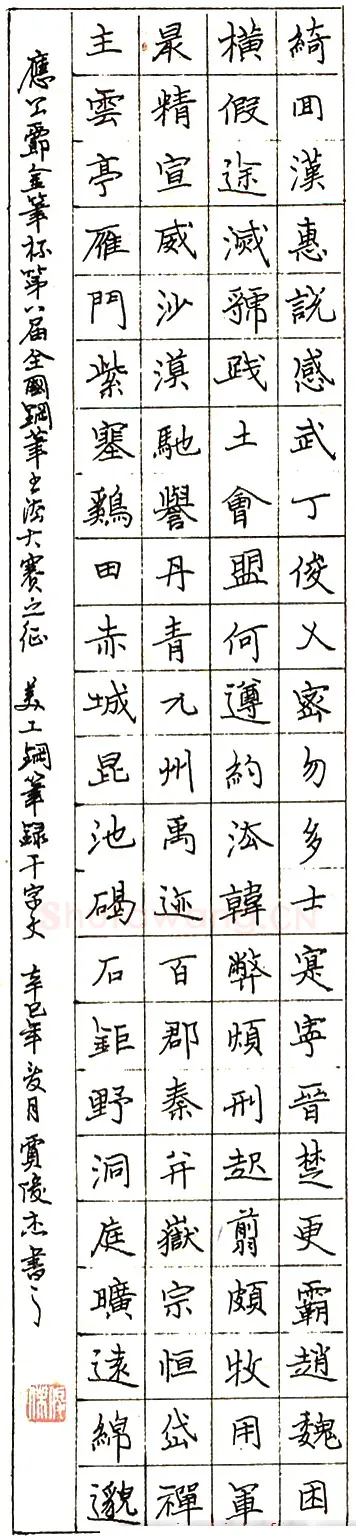 綺回漢惠說感武丁俊乂密勿多士寔寧晉楚更霸趙魏困
橫假途滅虢践土會盟何遵約法韓弊煩刑起翦頗牧用軍
最精宣威沙漠馳譽丹青九州禹迹百郡秦并嶽宗恒岱禪
主雲亭雁門紫塞鷄田赤城昆池碣石鉅野洞庭曠遠綿邈
應公爵金筆杯第八届全國鋼筆书法大賽之征 美工鋼筆録千字文 辛巳年夏月賈俊杰書
Shufawang.CN